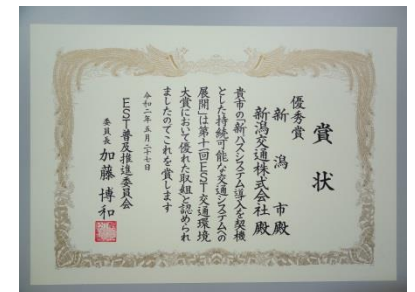 賞状
優秀賞
新潟市殿
新潟交通株式会社殿
貴市の「新バスシステム導入を契機
とした持続可能な交通システムへの
展開」は第十一回EST交通環境
大賞において優れた取組と認められ
ましたのでこれを賞します
令和二年五月二十七日
EST普及推進委員会
委員長 加藤博和